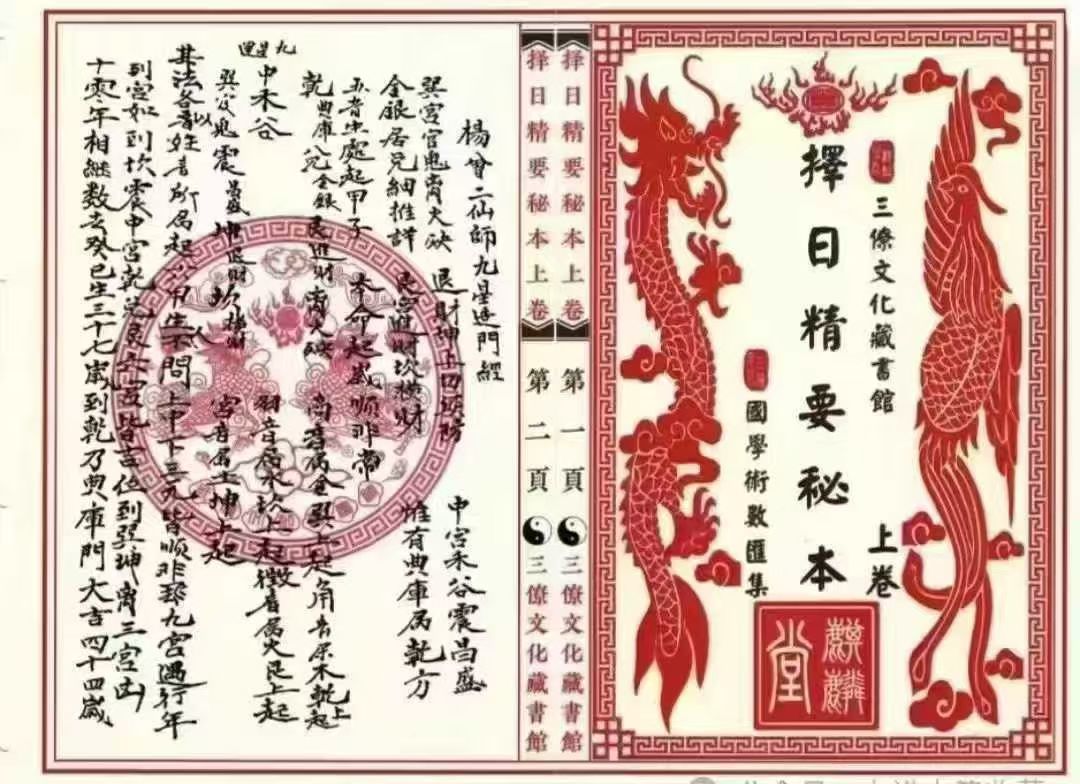 三僚文化藏書館
擇日精要秘本
上卷
國學術數匯集
麒麟堂
择日精要秘本上卷 第一頁 三僚文化藏書館
择日精要秘本上卷 第二頁 三僚文化藏書館
楊曾二仙師九星門經
巽宮官鬼离火破 退財坤上切須防 中宮禾谷震昌盛
金銀居兌細推詳 艮宮進財坎橫財 惟有典庫属乾方
五音出處起甲子 本命起歲順非常
乾典庫兌金銀艮進財离火破 商音属金巽上起角音属木乾上起
九星運
中禾谷 羽音属水坎上起徵音属火艮上起
巽官鬼震昌盛坤退財坎橫財 宮音居土坤上起
其法各以音姓音所属起六甲生人不問上中下三元皆順非九宮遇行年
到宮如到坎震中宮乾兌艮六宮皆吉但到巽坤离三宮凶
十零年相継数去癸巳生三十七歲到乾乃典庫門大吉四十四歲